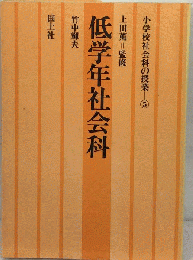 小学校社会科の授業
上田薫=監修
低学年社会科
竹中輝夫
国土社